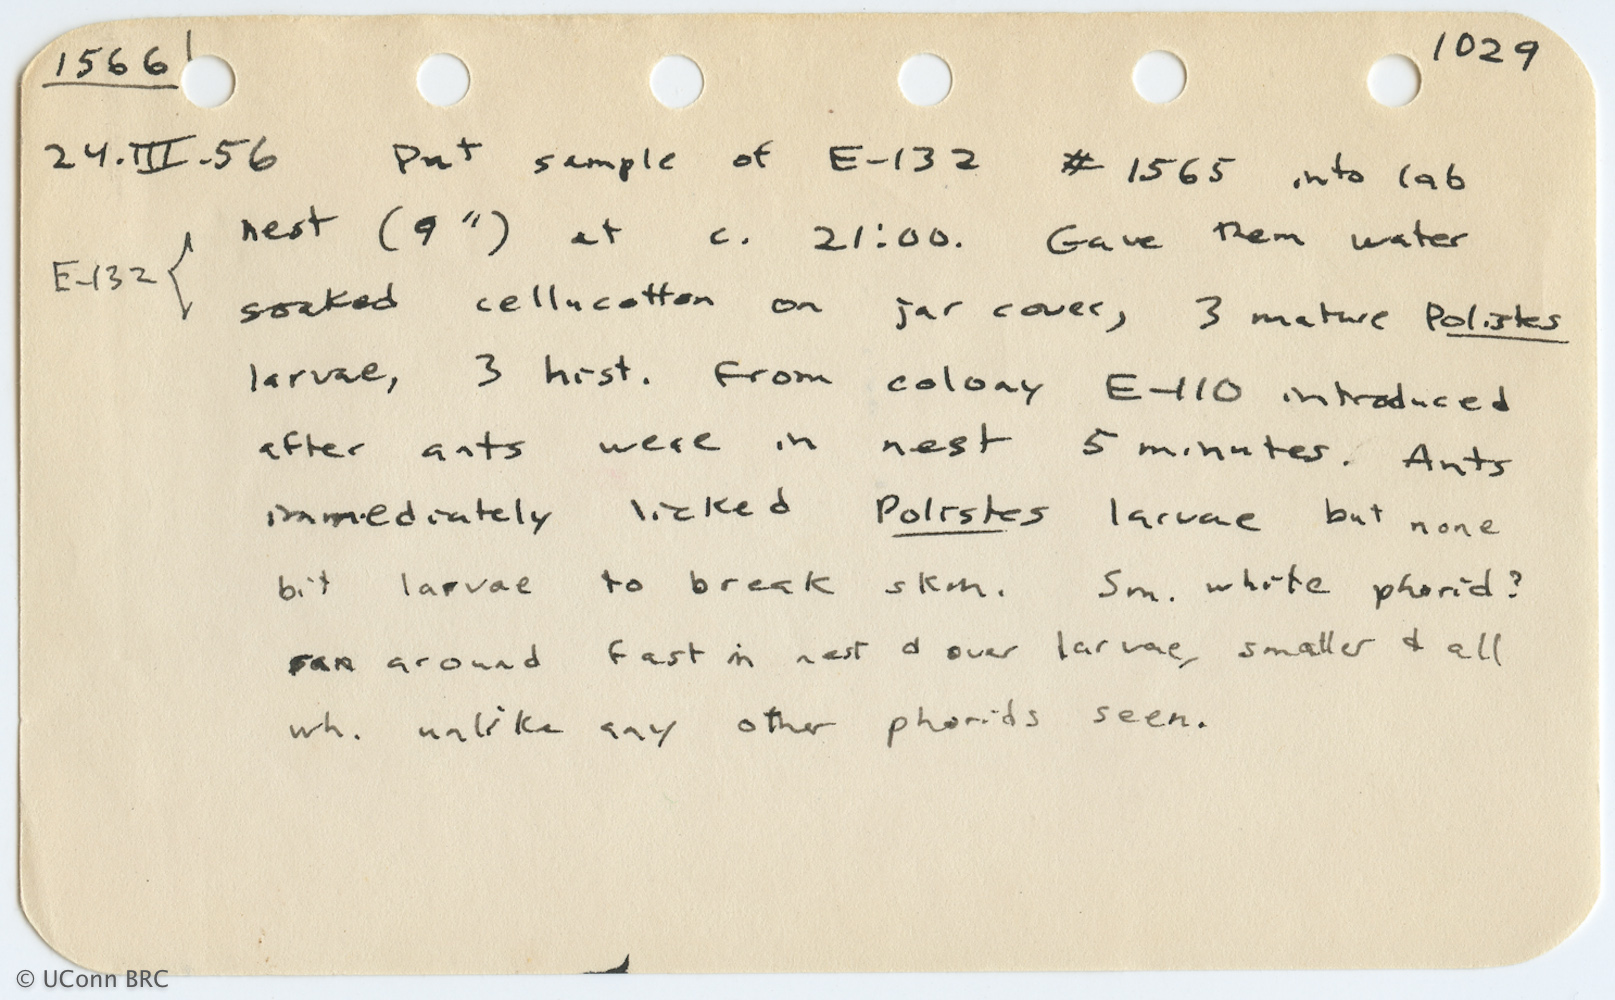 1566
1029
24.III.56 Put sample of E-132 # 1565 into lab
nest (9") at c. 21:00. Gave them water
E-132
soaked cellucotton on jar cover, 3 mature Polistes
larvae, 3 hist. from colony E-110 introduced
after ants were in nest 5 minutes. Ants
immediately licked Polistes larvae but none
bit larvae to break skin. Sm. white phorid?
ran around fast in nest & over larvae, smaller & all
wh. unlike any other phorids seen.
© UConn BRC